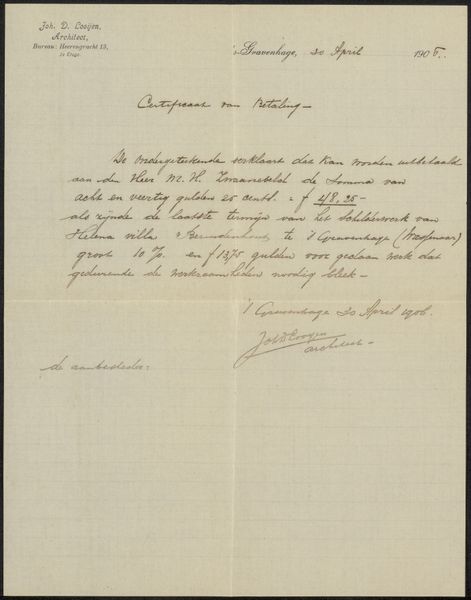 Joh. D. Looijen,
Architect,
Bureau: Heerengracht 13,
2e Etage.
's-Gravenhage, 30 April 1906.
Certificaat van Betaling
De ondergeteekende verklaart dat kan worden uitbetaald
aan den Heer M. H. de somma van
acht en veertig gulden 25 cents. = f 48,25-
als zijnde de laatste termijn van het schilderwerk van
Helena villa te 's Gravenhage (Wassenaar)
groot 10% en f 13,75 gulden voor gedaan werk dat
gedurende de werkzaamheden noodig bleek-
's Gravenhage 30 April 1906.
Joh D Looijen
architect-
de aanbesteder: